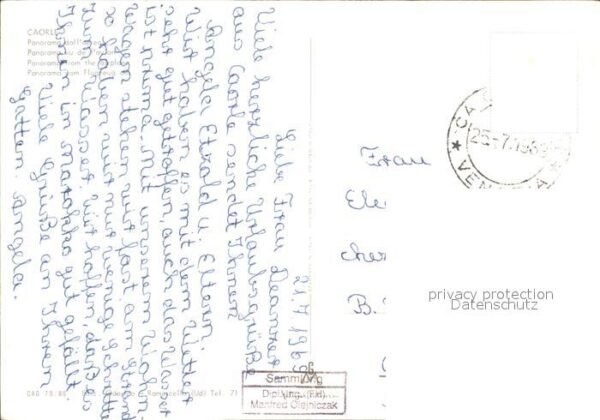 CAORLE
Panorama dall'aereo
Panorama vu de l'avion
Panorama from the
Panorama vom Flugzeug
21.7.1969
Liebe Frau
Viele herzliche Urlaubsgrüße
aus Caorle sendet Ihnen
Angela Etzold u. Eltern.
Wir haben es mit dem Wetter
sehr gut getroffen, auch das Wasser
ist prima. Mit unserem Wohn-
wagen stehen wir fast am Strand
so haben wir nur wenige Schritte
zum Wasser. Wir hoffen, daß es
Ihnen in Marokko gut gefällt
Viele Grüße an Ihren
Gatten. Angela.
Frau
B.
25-7-1969
VENEZIA
privacy protection
Datenschutz
Sammlung
Dipl.-Ing. (FH)
Manfred Olejniczak